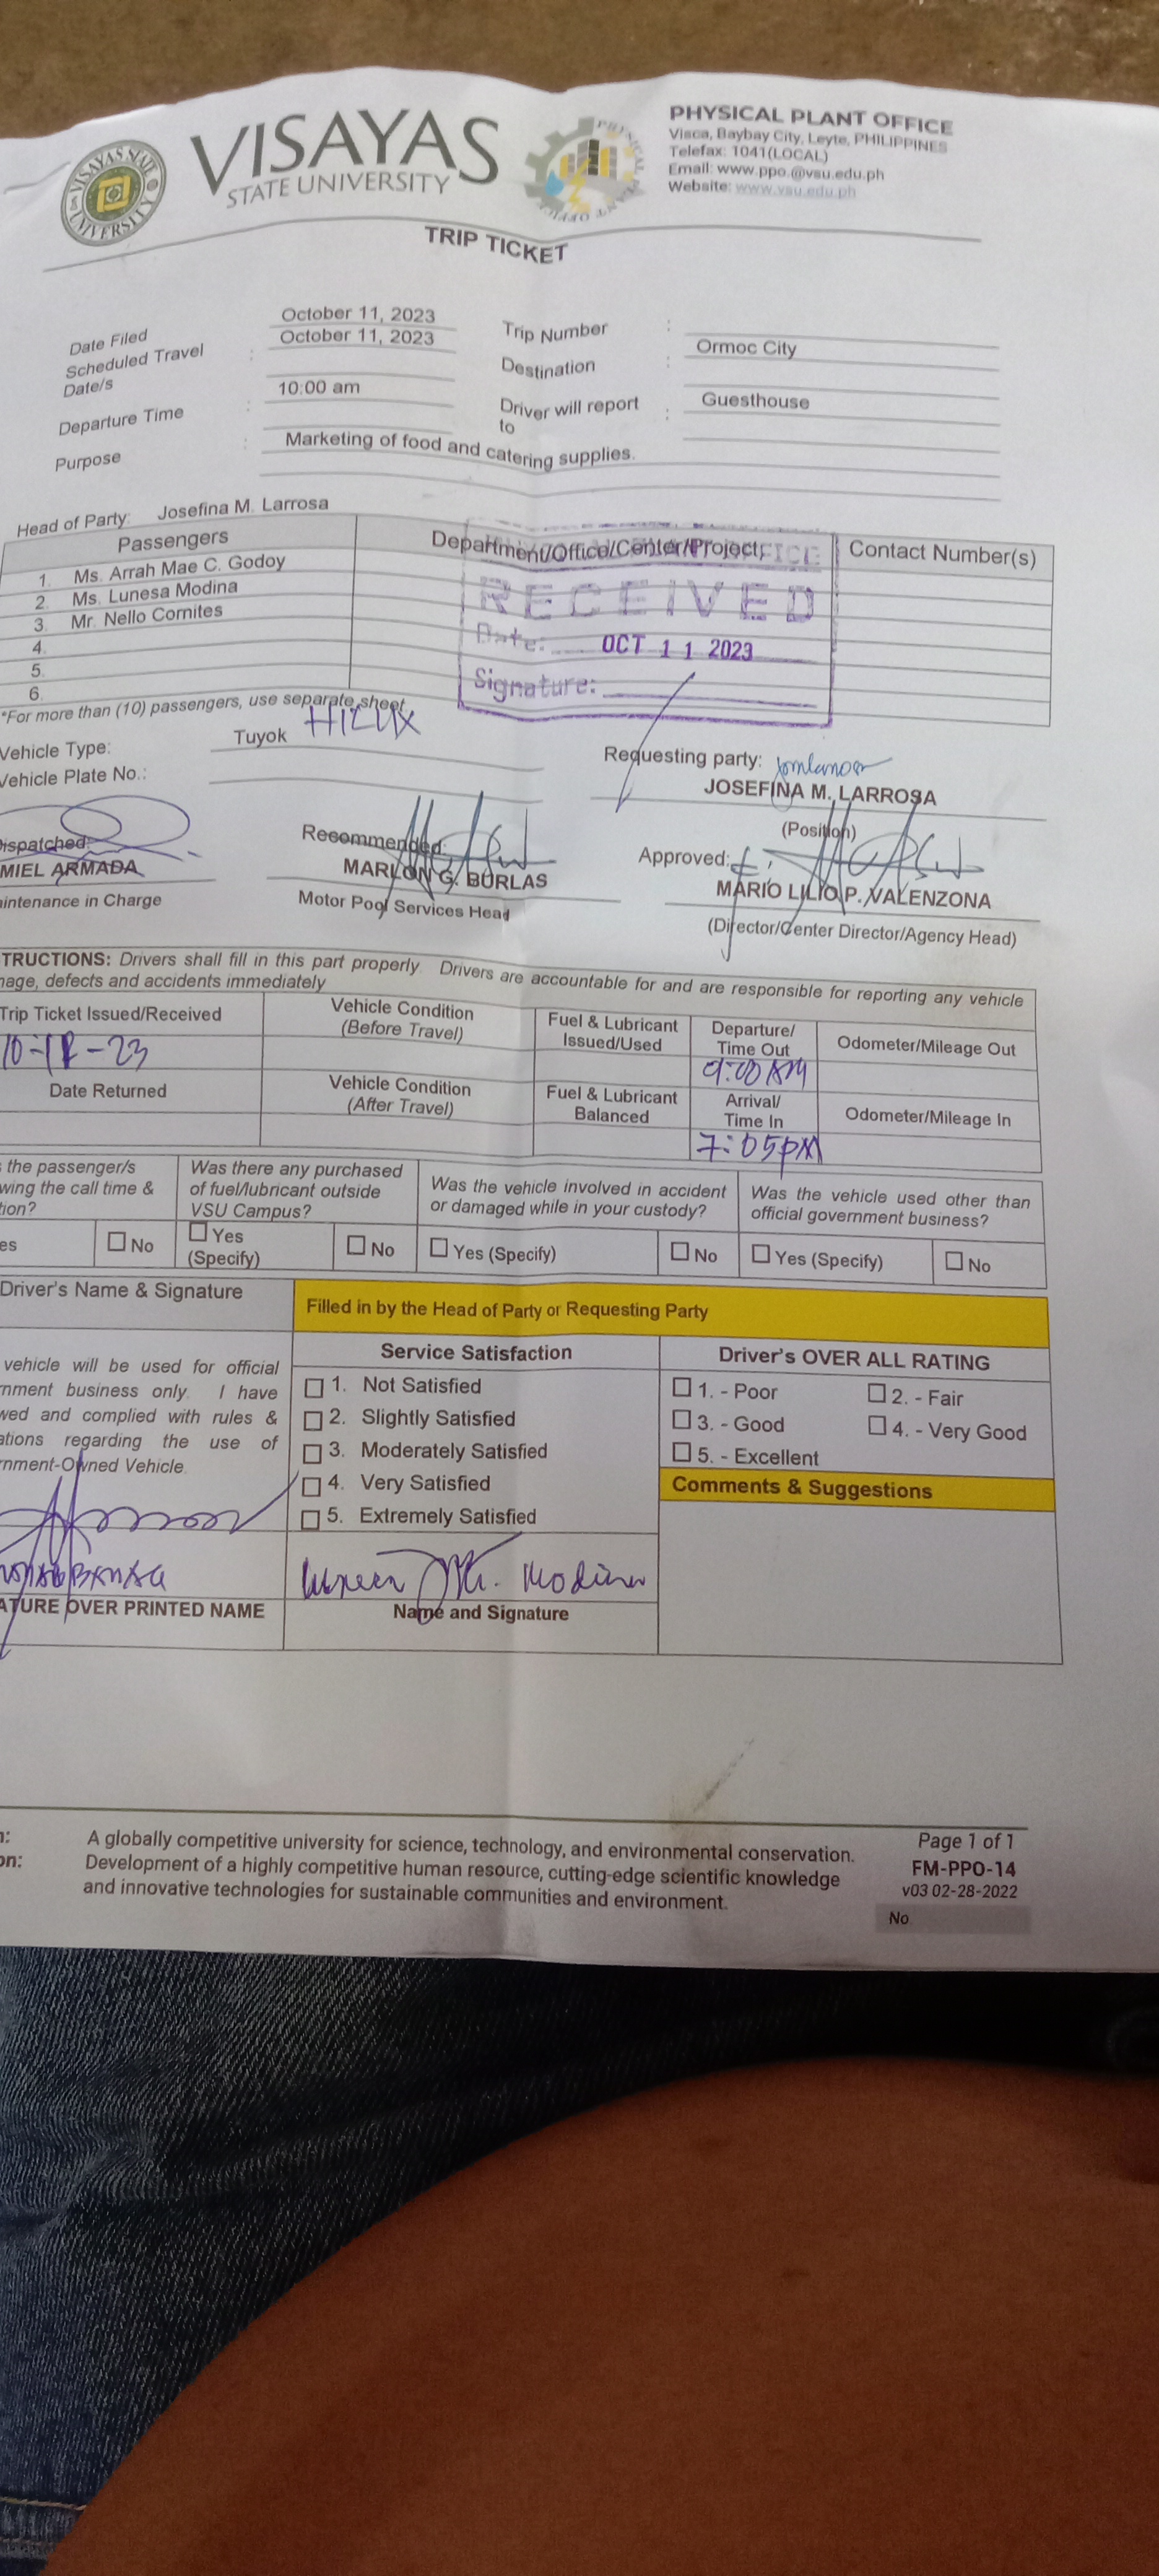 VISAYAS
STATE UNIVERSITY
VISAYAS STATE UNIVERSITY
PHYSICAL PLANT OFFICE
Visca, Baybay City, Leyte, PHILIPPINES
Telefax: 1041(LOCAL)
Email: www.ppo.@vsu.edu.ph
Website: www.vsu.edu.ph
TRIP TICKET
Date Filed October 11, 2023
Scheduled Travel Date/s : October 11, 2023
Departure Time : 10:00 am
Purpose : Marketing of food and catering supplies.
Trip Number :
Destination : Ormoc City
Driver will report to : Guesthouse
Head of Party: Josefina M. Larrosa
Passengers Department/Office/Center/Project Contact Number(s)
1. Ms. Arrah Mae C. Godoy
2. Ms. Lunesa Modina
3. Mr. Nello Cornites
4.
5.
6.
RECEIVED
Date: OCT 11 2023
Signature:
*For more than (10) passengers, use separate sheet
Vehicle Type: Tuyok HILUX
Vehicle Plate No.:
Requesting party:
JOSEFINA M. LARROSA
(Position)
ispatched:
MIEL ARMADA
intenance in Charge
Recommended:
MARLON G. BURLAS
Motor Pool Services Head
Approved:
MARIO LILIO P. VALENZONA
(Director/Center Director/Agency Head)
TRUCTIONS: Drivers shall fill in this part properly. Drivers are accountable for and are responsible for reporting any vehicle
mage, defects and accidents immediately
Trip Ticket Issued/Received
Vehicle Condition (Before Travel)
Fuel & Lubricant Issued/Used
Departure/ Time Out
Odometer/Mileage Out
9:00 AM
Date Returned
Vehicle Condition (After Travel)
Fuel & Lubricant Balanced
Arrival/ Time In
Odometer/Mileage In
7:05 PM
the passenger/s
wing the call time &
tion?
Was there any purchased
of fuel/lubricant outside
VSU Campus?
Was the vehicle involved in accident
or damaged while in your custody?
Was the vehicle used other than
official government business?
es No
Yes (Specify) No
Yes (Specify) No
Yes (Specify) No
Driver's Name & Signature
Filled in by the Head of Party or Requesting Party
Service Satisfaction
Driver's OVER ALL RATING
vehicle will be used for official
rnment business only. I have
wed and complied with rules &
ations regarding the use of
rnment-Owned Vehicle.
1. Not Satisfied
2. Slightly Satisfied
3. Moderately Satisfied
4. Very Satisfied
5. Extremely Satisfied
1. - Poor 2. - Fair
3. - Good 4. - Very Good
5. - Excellent
Comments & Suggestions
Modina
ATURE OVER PRINTED NAME
Name and Signature
n: A globally competitive university for science, technology, and environmental conservation.
on: Development of a highly competitive human resource, cutting-edge scientific knowledge
and innovative technologies for sustainable communities and environment.
Page 1 of 1
FM-PPO-14
v03 02-28-2022
No